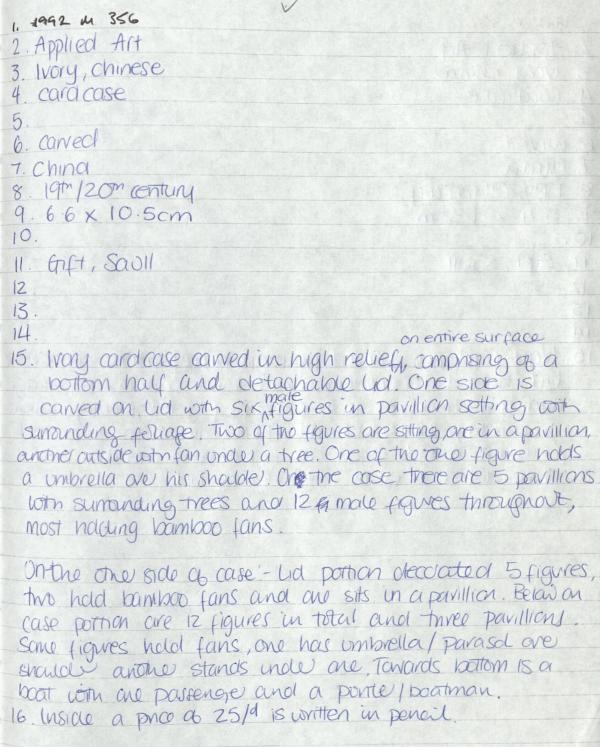 1. 1992 M 356
2. Applied Art
3. Ivory, Chinese
4. card case
5.
6. carved
7. China
8. 19th/20th century
9. 6.6 x 10.5cm
10.
11. Gift, Savill
12.
13.
14.
on entire surface
15. Ivory cardcase carved in high relief, comprising of a
bottom half and detachable lid. One side is
male
carved on lid with six figures in pavillion setting with
surrounding foliage. Two of the figures are sitting, one in a pavillion,
another outside with fan under a tree. One of the figure holds
a umbrella over his shoulder. On the case, there are 5 pavillions
with surrounding trees and 12 male figures throughout,
most holding bamboo fans.
On the one side of case - Lid portion decorated 5 figures,
two hold bamboo fans and one sits in a pavillion. Below on
case portion are 12 figures in total and three pavillions.
Some figures hold fans, one has umbrella/parasol over
shoulder another stands under one. Towards bottom is a
boat with one passenger and a /boatman.
16. Inside a price of 25/d is written in pencil.